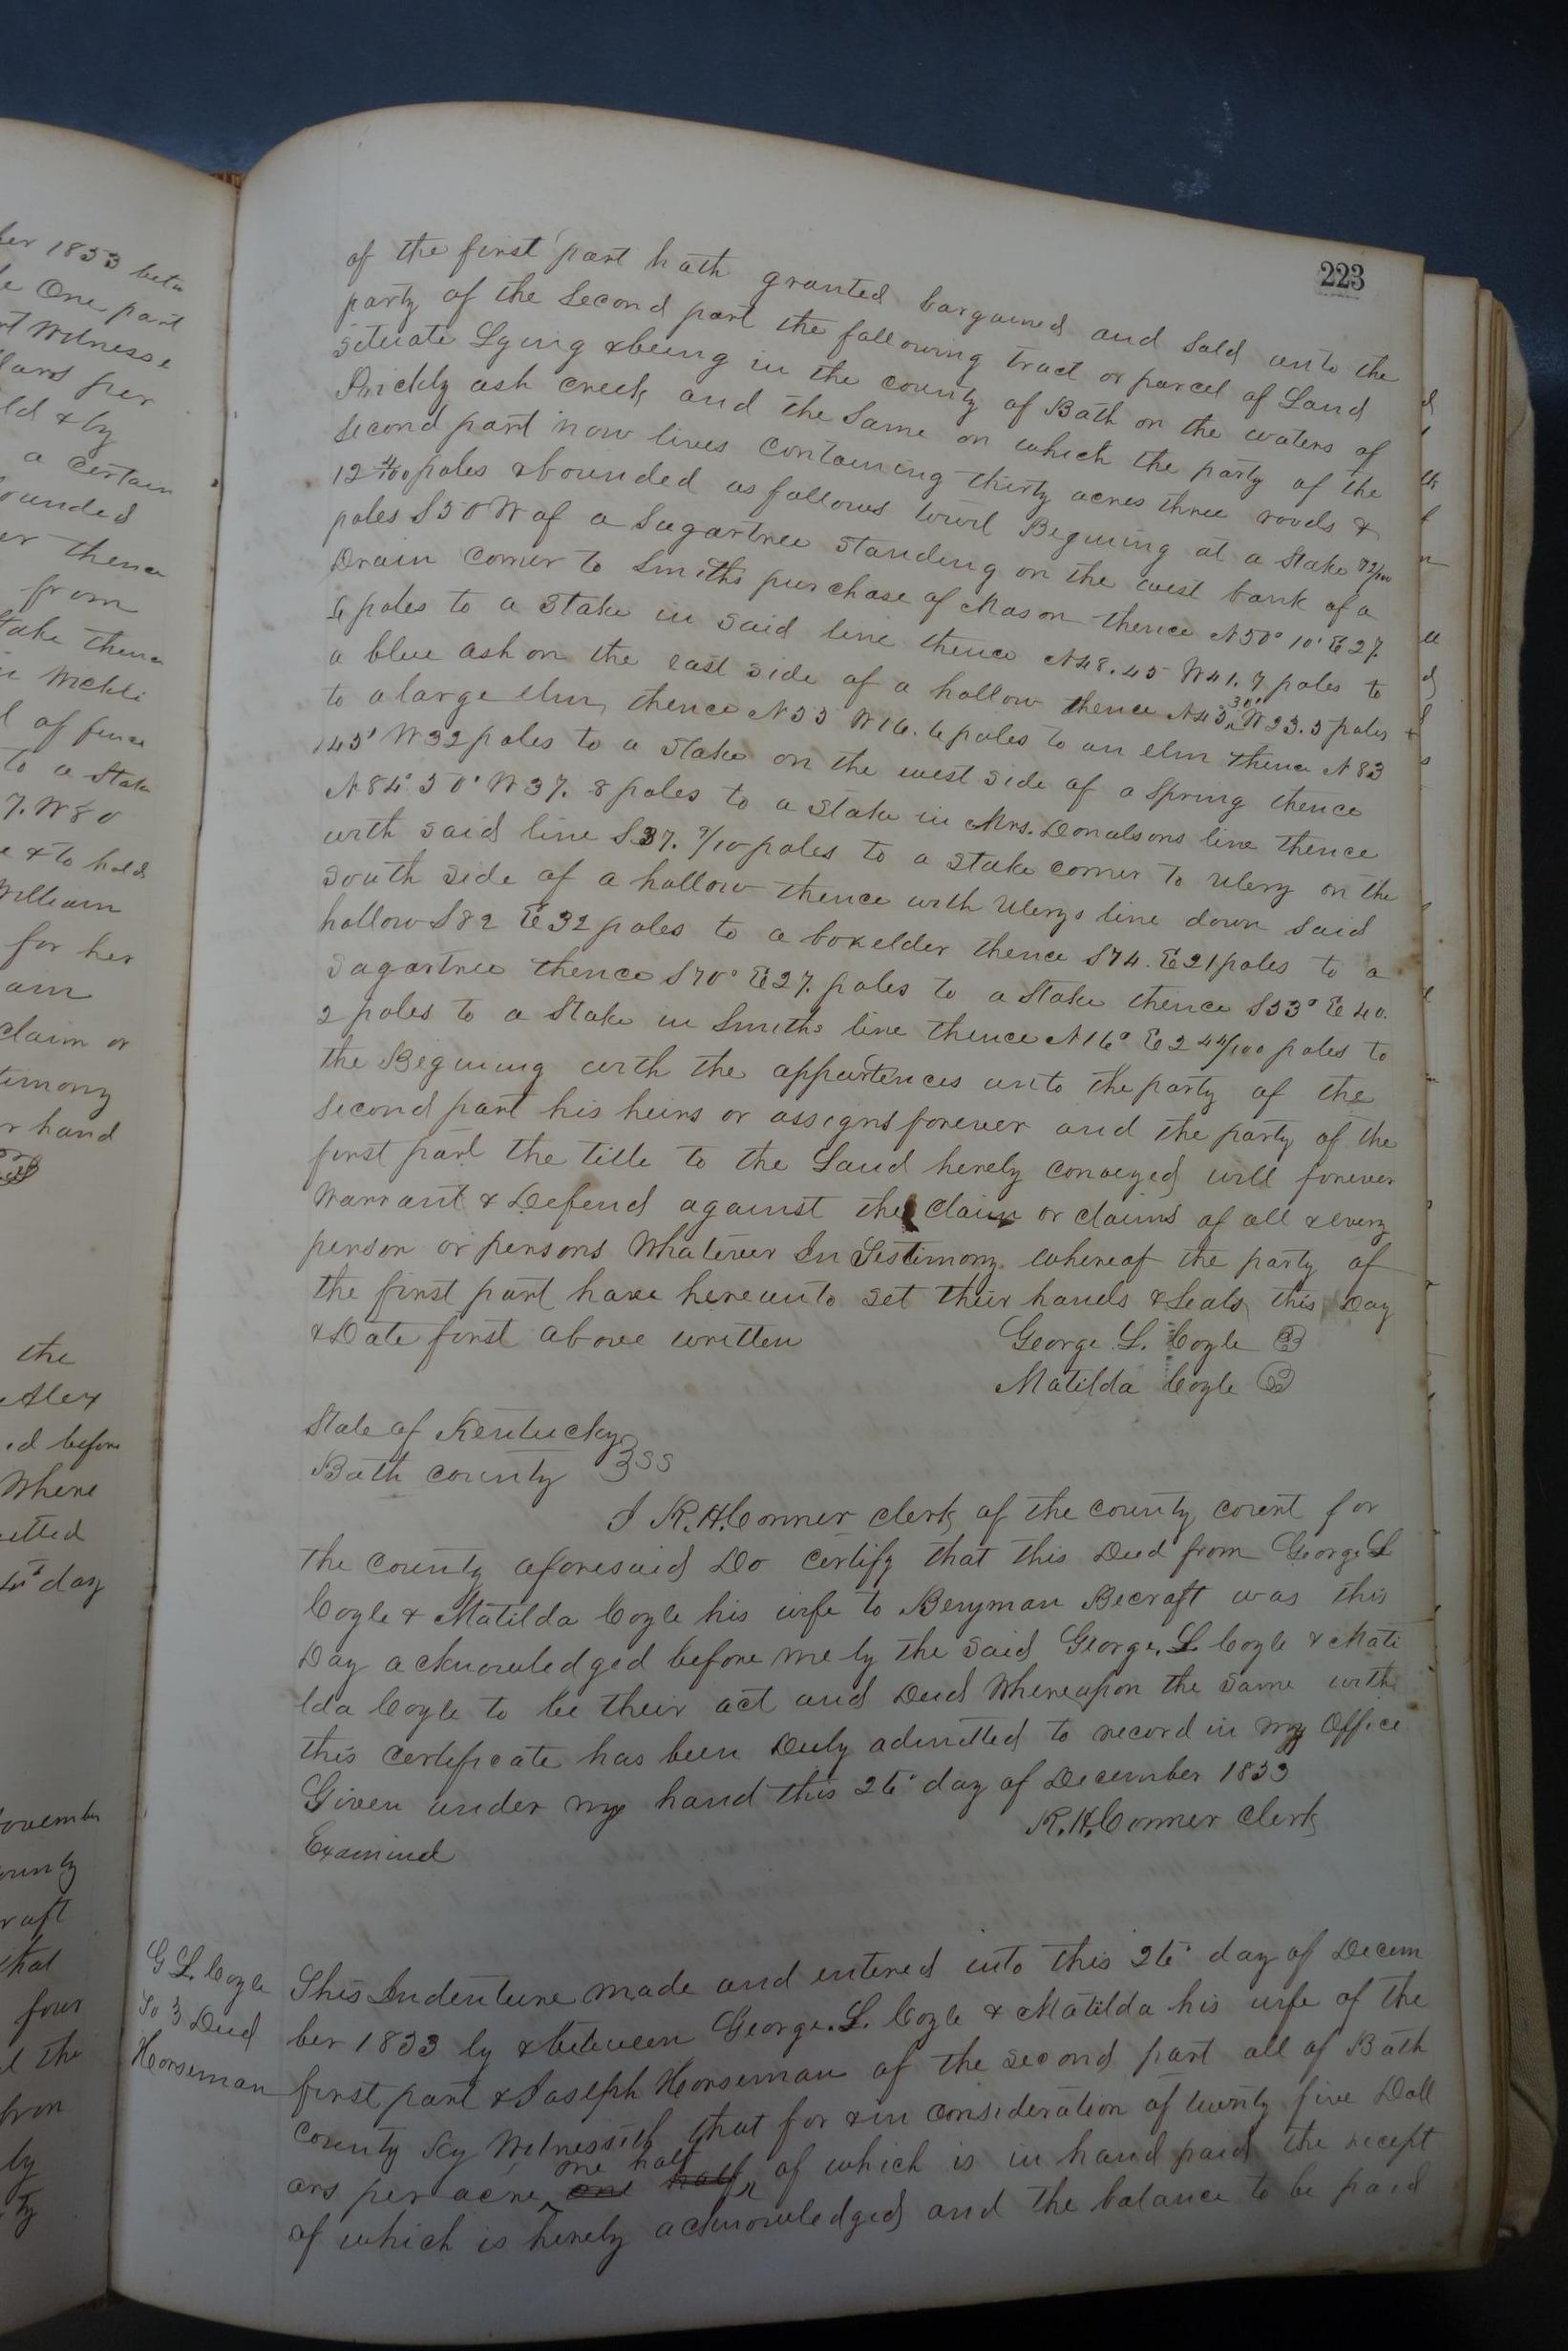 223
of the first part hath granted bargained and Sold unto the
party of the Second part the following tract or parcel of Land
Situate Lying & being in the county of Bath on the waters of
Prickly ash creek and the Same on which the party of the
Second part now lives containing thirty acres three roods &
12 poles & bounded as follows towit Begining at a Stake 72/100
poles S50W of a Sugartree Standing on the west bank of a
Drain corner to Smiths purchase of Mason thence N50° 10' E27.
6 poles to a Stake in said line thence N48.45 W41.7 poles to
a blue ash on the east side of a hollow thence N43 30' W23.5 poles
to a large elm, thence N55 W16.6 poles to an elm thence N83
145' W32 poles to a Stake on the west side of a Spring thence
N84° 50' W37.8 poles to a Stake in Mrs. Donalsons line thence
with said line S37. 9/10 poles to a Stake corner to Ulery on the
South side of a hollow thence with Ulerys line down said
hollow S82 E32 poles to a boxelder thence S74. E21 poles to a
Sugartree thence S70° E27. poles to a Stake thence S53° E40.
2 poles to a Stake in Smiths line thence N16° E2 44/100 poles to
the Begining with the appurtences unto the party of the
Second part his heirs or assigns forever and the party of the
first part the title to the Land hereby conveyed will forever
Warrant & Defend against the claim or claims of all & every
person or persons Whatever In Testimony whereof the party of
the first part have hereunto set their hands & Seals this Day
& Date first above written George L. Coyle
Matilda Coyle
State of Kentucky
Bath county } SS
I K. H. Conner clerk of the county court for
the county aforesaid Do certify that this Deed from George L
Coyle & Matilda Coyle his wife to Benyman Becraft was this
Day acknowledged before me by the said George. L. Coyle & Mati
lda Coyle to be their act and Deed Whereupon the same with
this certificate has been Duly admitted to record in my Office
Given under my hand this 26' day of December 1853
K. H. Conner Clerk
Examined
G L. Coyle
To } Deed
Horseman
This Indenture made and entered into this 26' day of Decem
ber 1853 by & between George. L. Coyle & Matilda his wife of the
first part & Joseph Horseman of the second part all of Bath
County Ky Witnesseth that for & in consideration of twenty five Doll
ars per acre one half of which is in hand paid the recept
of which is hereby acknowledged and the balance to be paid